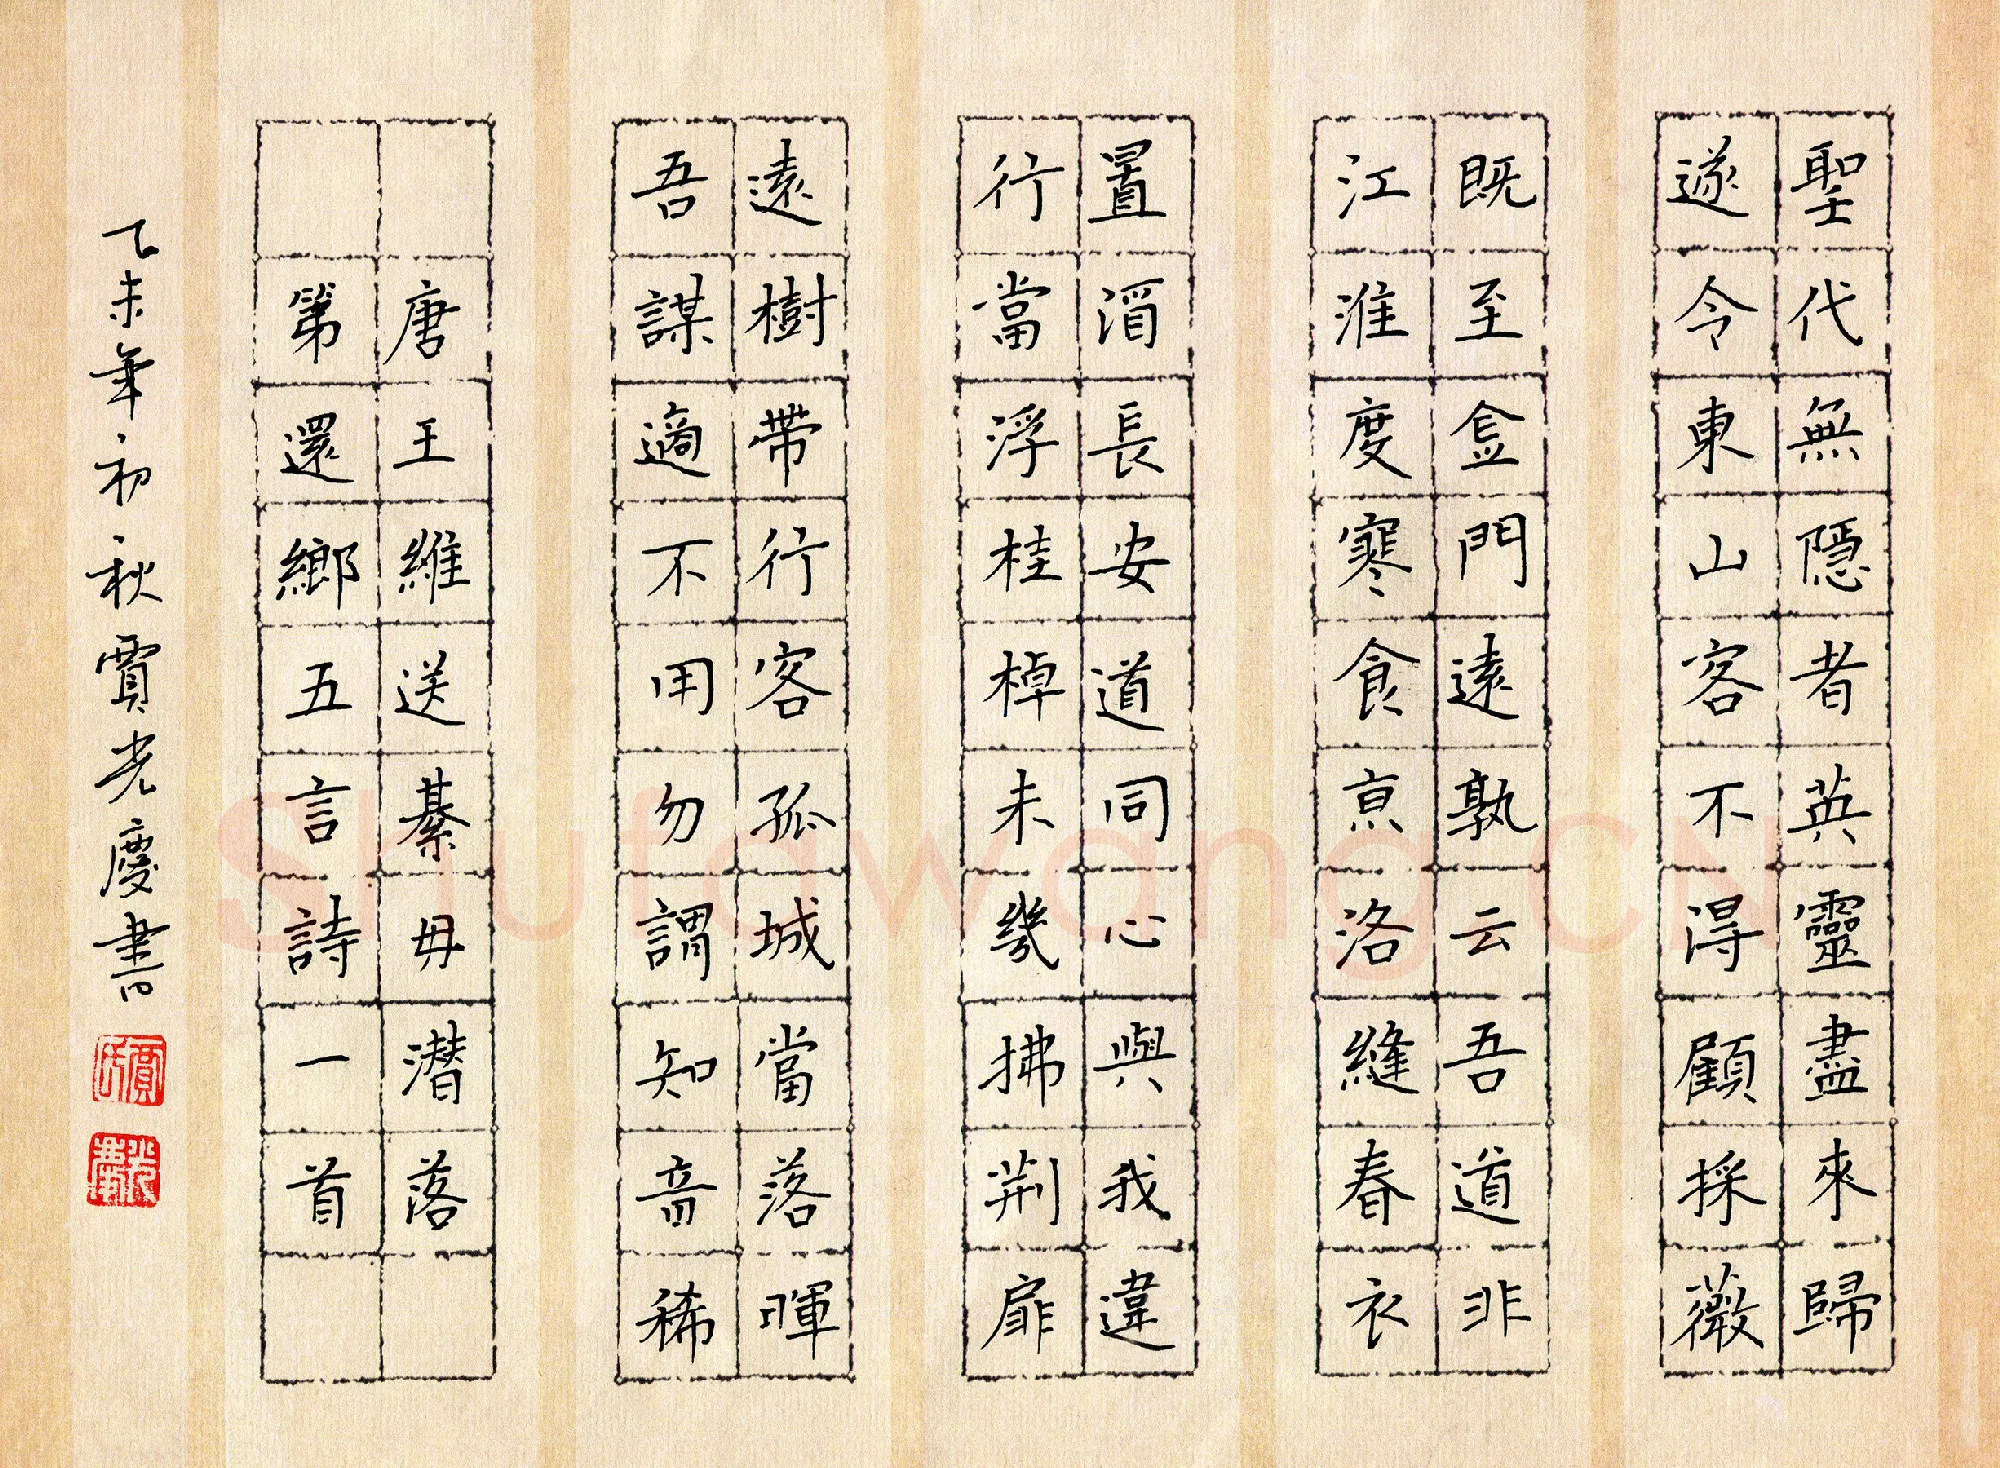 聖代無隱者英靈盡來歸
遂令東山客不得顧採薇
既至金門遠孰云吾道非
江淮度寒食京洛縫春衣
置酒長安道同心與我違
行當浮桂棹未幾拂荆扉
遠樹帶行客孤城當落暉
吾謀適不用勿謂知音稀
唐王維送綦毋潛落
第還鄉五言詩一首
乙未年初秋賈光慶書
賈
光慶
Shufawang.CN